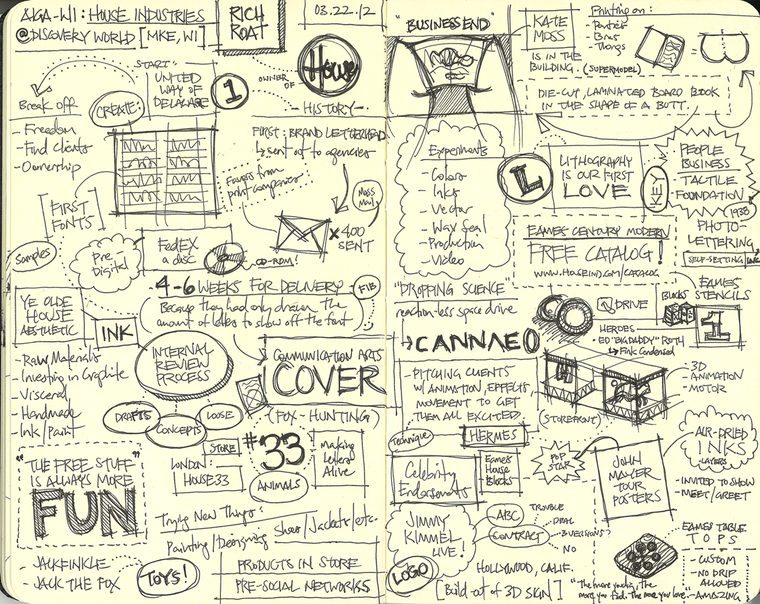 AIGA-WI: HOUSE INDUSTRIES
@DISCOVERY WORLD [MKE, WI]
RICH
ROAT
03.22.12
START:
UNITED
WAY OF
DELAWARE
1
Break off
- Freedom
- Find clients
- Ownership
CREATE:
OWNER
OF
House
- HISTORY -
FIRST: BRAND LETTERHEAD
↳ sent out to agencies
Favors from
print companies
Mass
Mail
× 400
SENT
[FIRST
FONTS]
Samples
Pre
Digital
FedEX
a disc
CD-ROM!
4-6 WEEKS FOR DELIVERY
FIB
Because they had only drawn the
amount of letters to show off the font
YE OLDE
HOUSE
AESTHETIC
INK
- Raw Materials
- Investing in Graphite
- Visceral
- Handmade
- Ink/Paint
INTERNAL
REVIEW
PROCESS
DRAFTS
CONCEPTS
LOOSE
COMMUNICATION ARTS
COVER
(FOX-HUNTING)
STORE
LONDON
HOUSE 33
#33
ANIMALS
Making
Letters
Alive
"THE FREE STUFF
IS ALWAYS MORE
FUN"
Trying New Things:
Painting/Designing Shoes/Jackets/etc.
- JACKFINKLE
- JACK THE FOX
TOYS!
PRODUCTS IN STORE
PRE-SOCIAL NETWORKS
"BUSINESS END"
KATE
MOSS
IS IN THE
BUILDING. (SUPERMODEL)
Printing on:
- Panties
- Bras
- Thongs
DIE-CUT, LAMINATED BOARD BOOK
IN THE SHAPE OF A BUTT.
Experiments
- Colors
- Inks
- Vector
- Wax Seal
- Production
- Video
L
LITHOGRAPHY
IS OUR FIRST
LOVE
KEY
PEOPLE
BUSINESS
TACTILE
FOUNDATION
1938
PHOTO-
LETTERING
SELF-SETTING INK
EAMES CENTURY MODERN
FREE CATALOG!
WWW.HOUSEIND.COM/CATALOG
"DROPPING SCIENCE
reaction-less space drive
→ CANNAE
DRIVE
BLOCKS
EAMES
STENCILS
1
HEROES
- ED "BIG DADDY" ROTH
↳ Fink Condensed
- PITCHING CLIENTS
W/ ANIMATION, EFFECTS
MOVEMENT TO GET
THEM ALL EXCITED
(STOREFRONT)
- 3D
- ANIMATION
- MOTOR
Technique
HERMES
Celebrity
Endorsements
Eames
House
Blocks
POP
STAR
JOHN
MAYER
TOUR
POSTERS
AIR-DRIED
INKS
LAYERS
- INVITED TO SHOW
- MEET/GREET
JIMMY
KIMMEL
LIVE!
ABC
CONTRACT
TROUBLE
DEAL
NO
LOGO
HOLLYWOOD, CALIF.
[Build-out of 3D SIGN]
EAMES TABLE
TOPS
- CUSTOM
- NO DRIP
ALLOWED
- AMAZING
"The more you dig, the
more you find. The more you love."